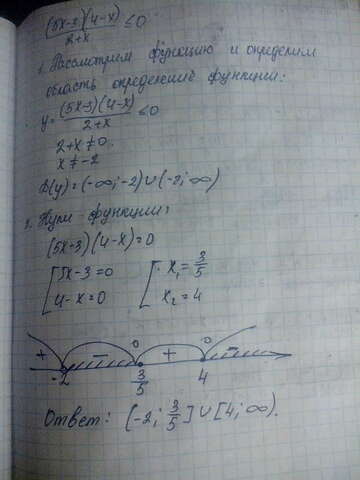 (5x-3)(4-x)/2+x ≤0
1. Рассмотрим функцию и определим
область определения функции:
y=(5x-3)(4-x)/2+x ≤0
2+x≠0.
x≠-2
D(y)=(-∞;-2)∪(-2;∞)
2. Нули функции:
(5x-3)(4-x)=0
[5x-3=0 [x₁=3/5
4-x=0 x₂=4
+ − 0 + 0 −
-2 3/5 4
Ответ: (-2; 3/5]∪[4;∞).